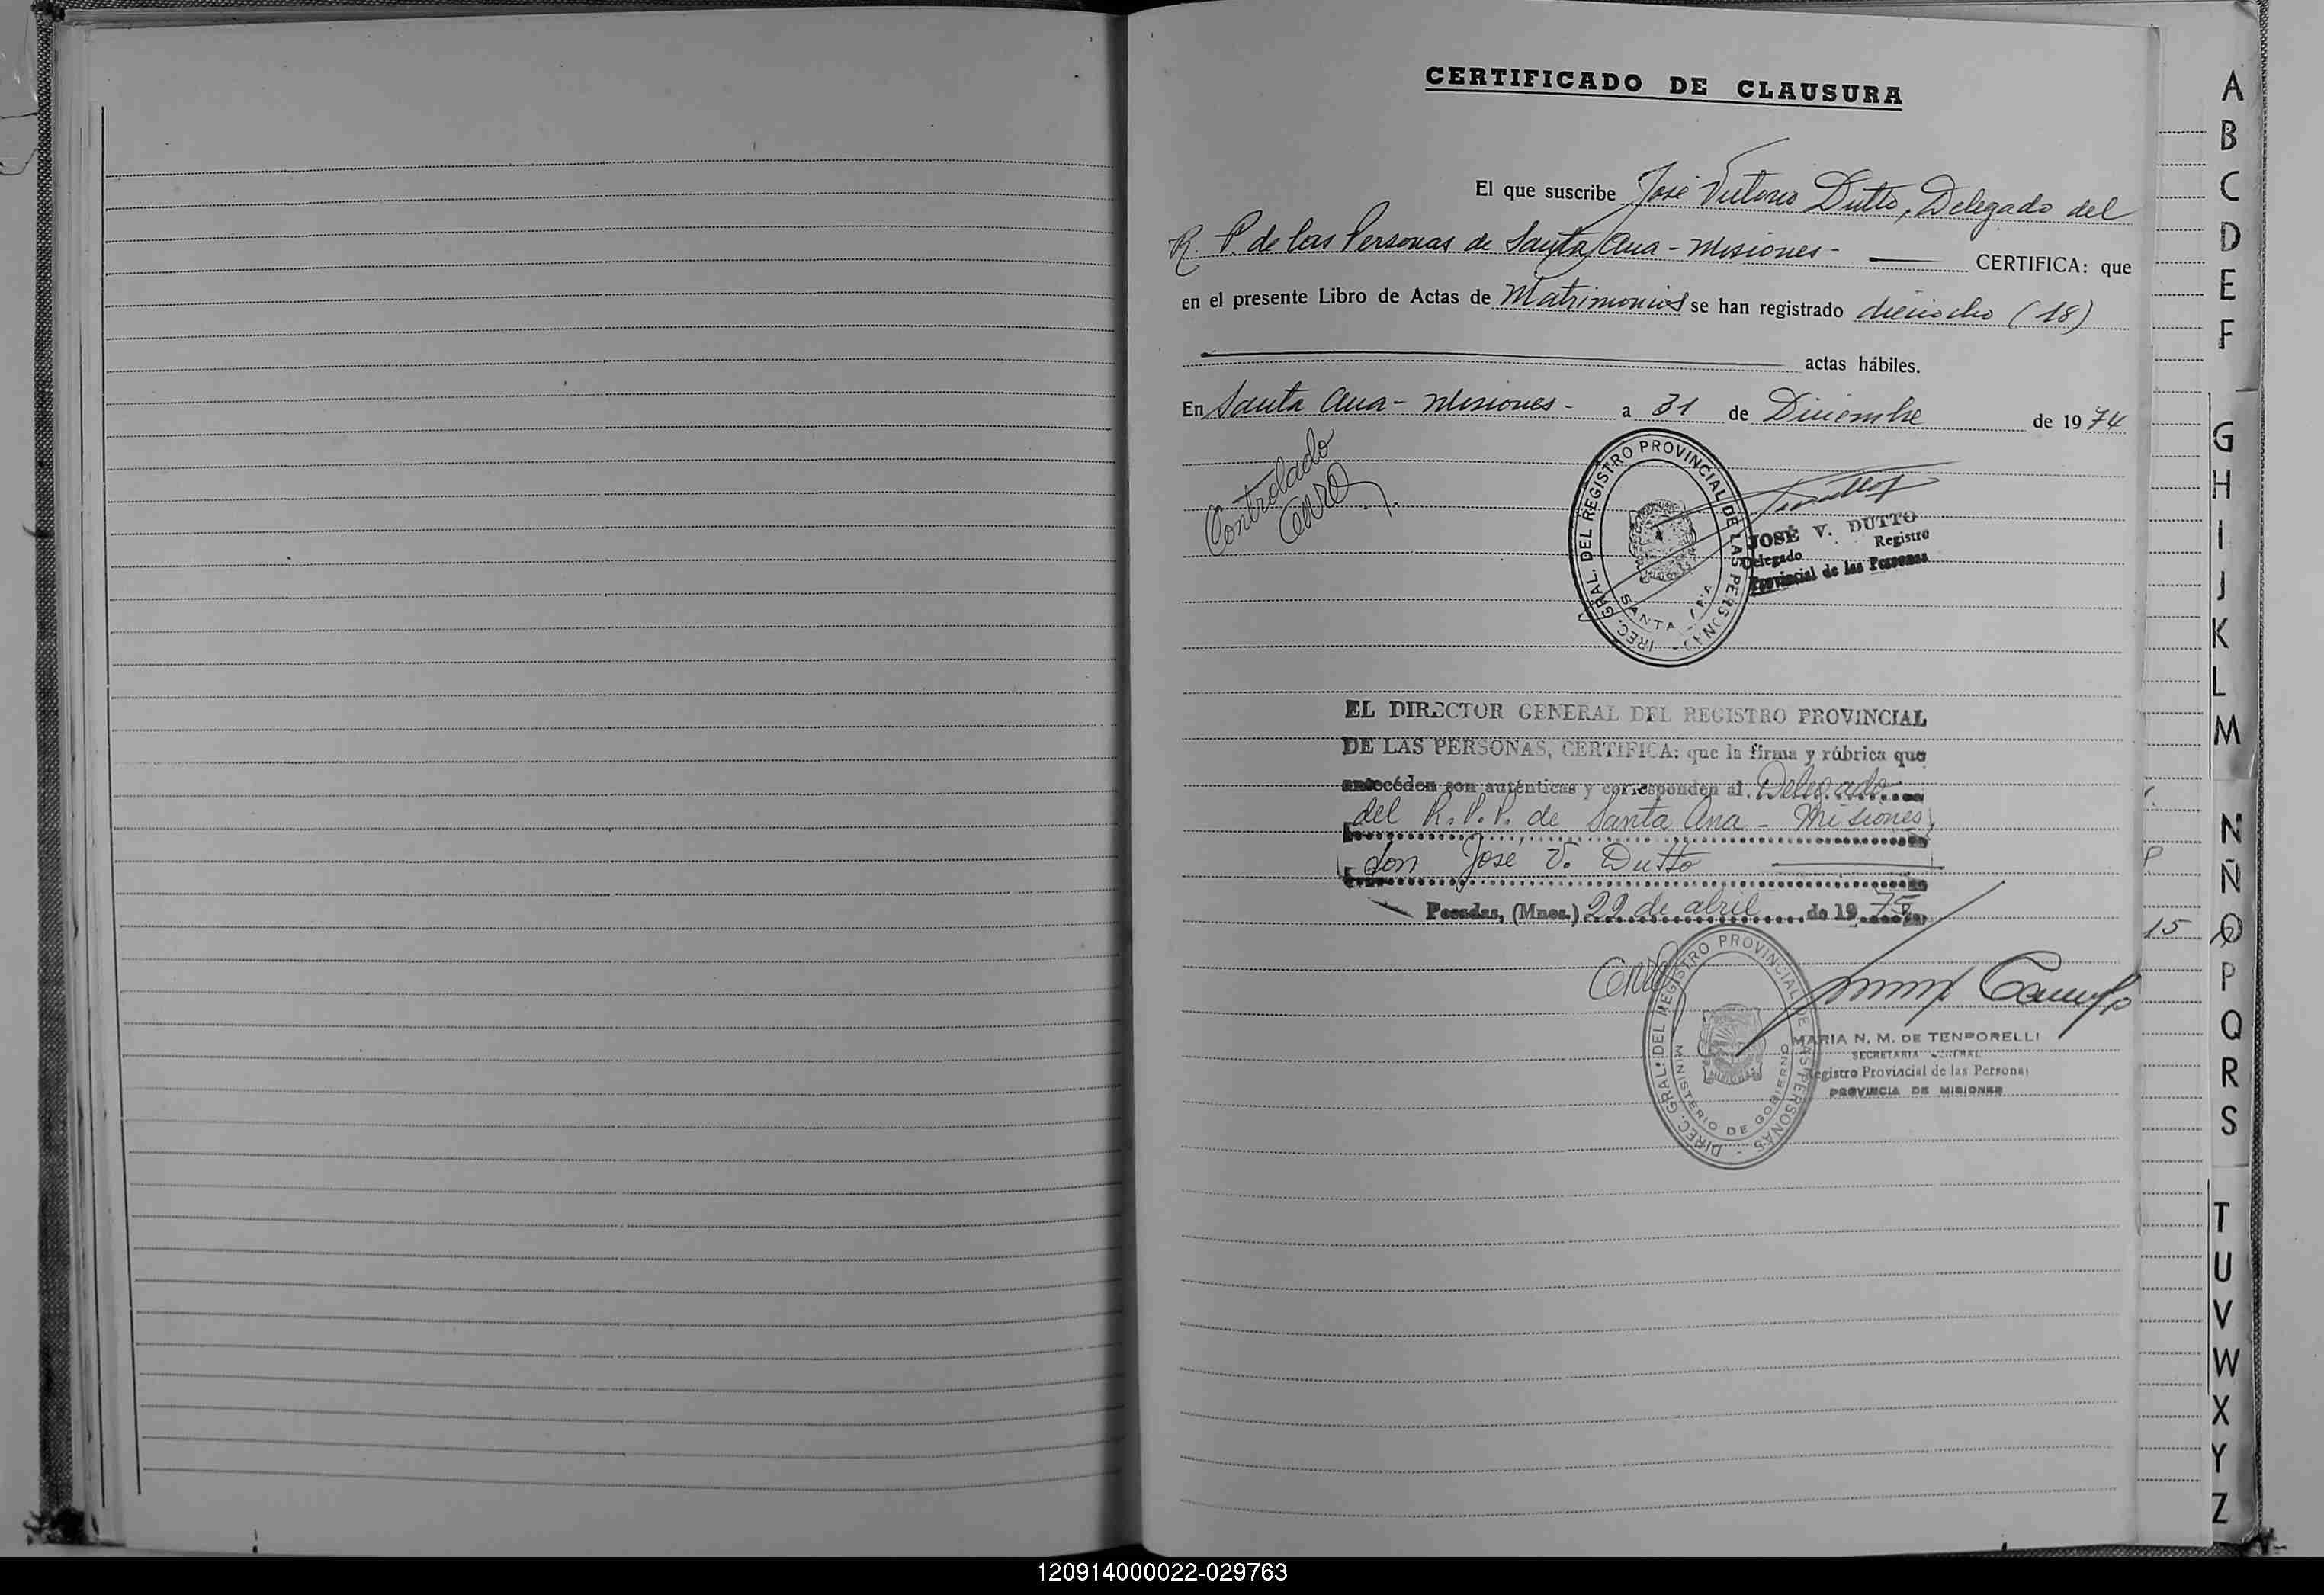 CERTIFICADO DE CLAUSURA
El que suscribe José Victorio Dutto, Delegado del
R. P. de las Personas de Santa Ana - Misiones - CERTIFICA: que
en el presente Libro de Actas de Matrimonios se han registrado dieciocho (18)
actas hábiles.
En Santa Ana - Misiones - a 31 de Diciembre de 1974
Controlado
DIREC. GRAL. DEL REGISTRO PROVINCIAL DE LAS PERSONAS
SANTA ANA
JOSÉ V. DUTTO
Delegado Registro
Provincial de las Personas
EL DIRECTOR GENERAL DEL REGISTRO PROVINCIAL
DE LAS PERSONAS, CERTIFICA: que la firma y rúbrica que
antecéden son auténticas y corresponden al Delegado
del R.P.P. de Santa Ana - Misiones,
don José V. Dutto
Posadas, (Mnes.) 29 de abril de 1975
DIREC. GRAL. DEL REGISTRO PROVINCIAL DE LAS PERSONAS -
MINISTERIO DE GOBIERNO
MARIA N. M. DE TEMPORELLI
SECRETARIA GENERAL
Registro Provincial de las Personas
PROVINCIA DE MISIONES
A
B
C
D
E
F
G
H
I
J
K
L
M
N
Ñ
15 O
P
Q
R
S
T
U
V
W
X
Y
Z
120914000022-029763